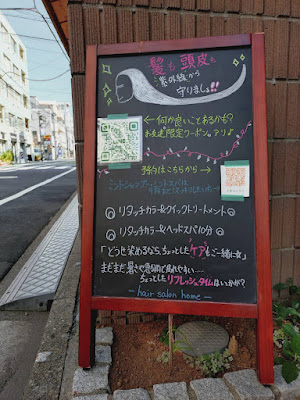 髪も頭皮も
紫外線から
守りましょ!!
←何か良いことあるかも?
お友達限定クーポン。アリ♪
予約はこちらから→
◎リタッチカラー&クイックトリートメント◎
◎リタッチカラー&ヘッドスパ10分◎
「どうせ染めるなら、ちょっとしたケアもご一緒に☆」
まだまだ暑さや湿気で疲れやすい…
ちょっとしたリフレッシュタイムはいかが?
- hair salon home -